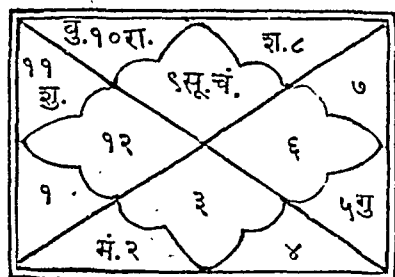 वु.१०रा.
श.८
११
शु.
९सू.चं.
७
१२
६
१
३
५गु
मं.२
४